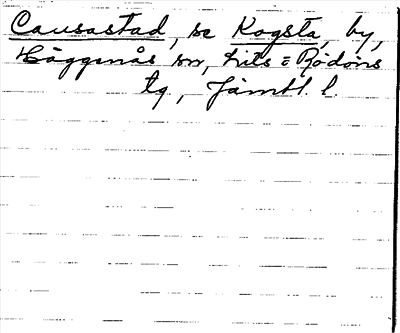 Causastad, se Kogsta, by,
Häggenås sn, Lits o Rödöns
tg, Jämtl. l.